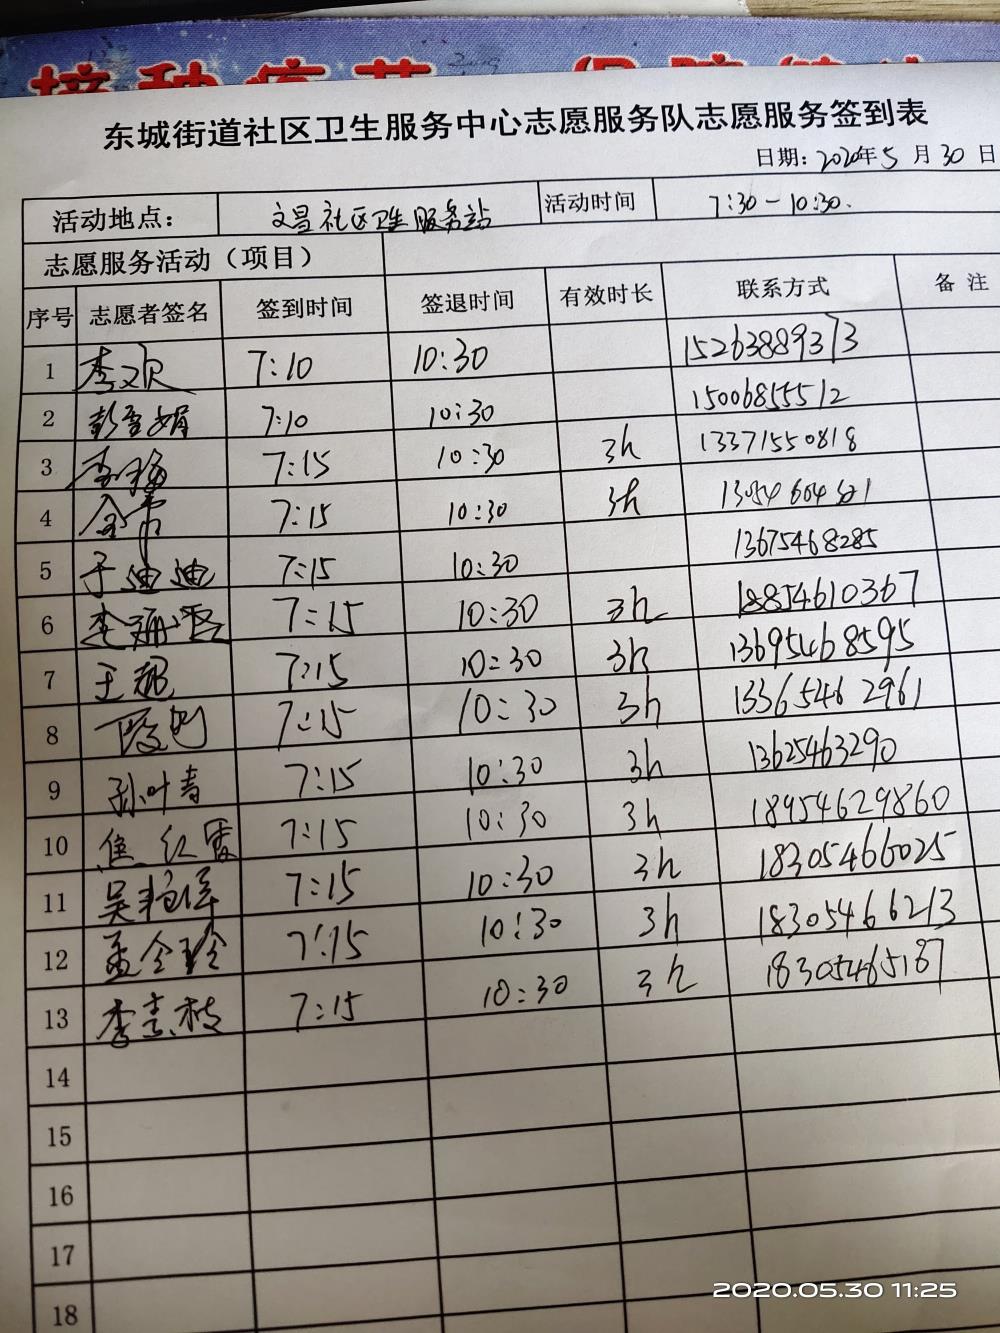 接种疫苗 保障健康
东城街道社区卫生服务中心志愿服务队志愿服务签到表
日期：2020年5月30日
活动地点： 文昌社区卫生服务站 活动时间 7:30-10:30.
志愿服务活动（项目）
序号 志愿者签名 签到时间 签退时间 有效时长 联系方式 备注
1 李欢 7:10 10:30 15263889373
2 彭雪娟 7:10 10:30 15006855512
3 李梅 7:15 10:30 3h 13371550818
4 7:15 10:30 3h
5 于迪迪 7:15 10:30 13675468285
6 7:15 10:30 3h 18854610367
7 王超 7:15 10:30 3h 13695468595
8 7:15 10:30 3h 13365462961
9 孙叶青 7:15 10:30 3h 13625463290
10 焦红霞 7:15 10:30 3h 18954629860
11 7:15 10:30 3h 18305466025
12 孟令玲 7:15 10:30 3h 18305466213
13 李素枝 7:15 10:30 3h 18305465187
14
15
16
17
18
2020.05.30 11:25